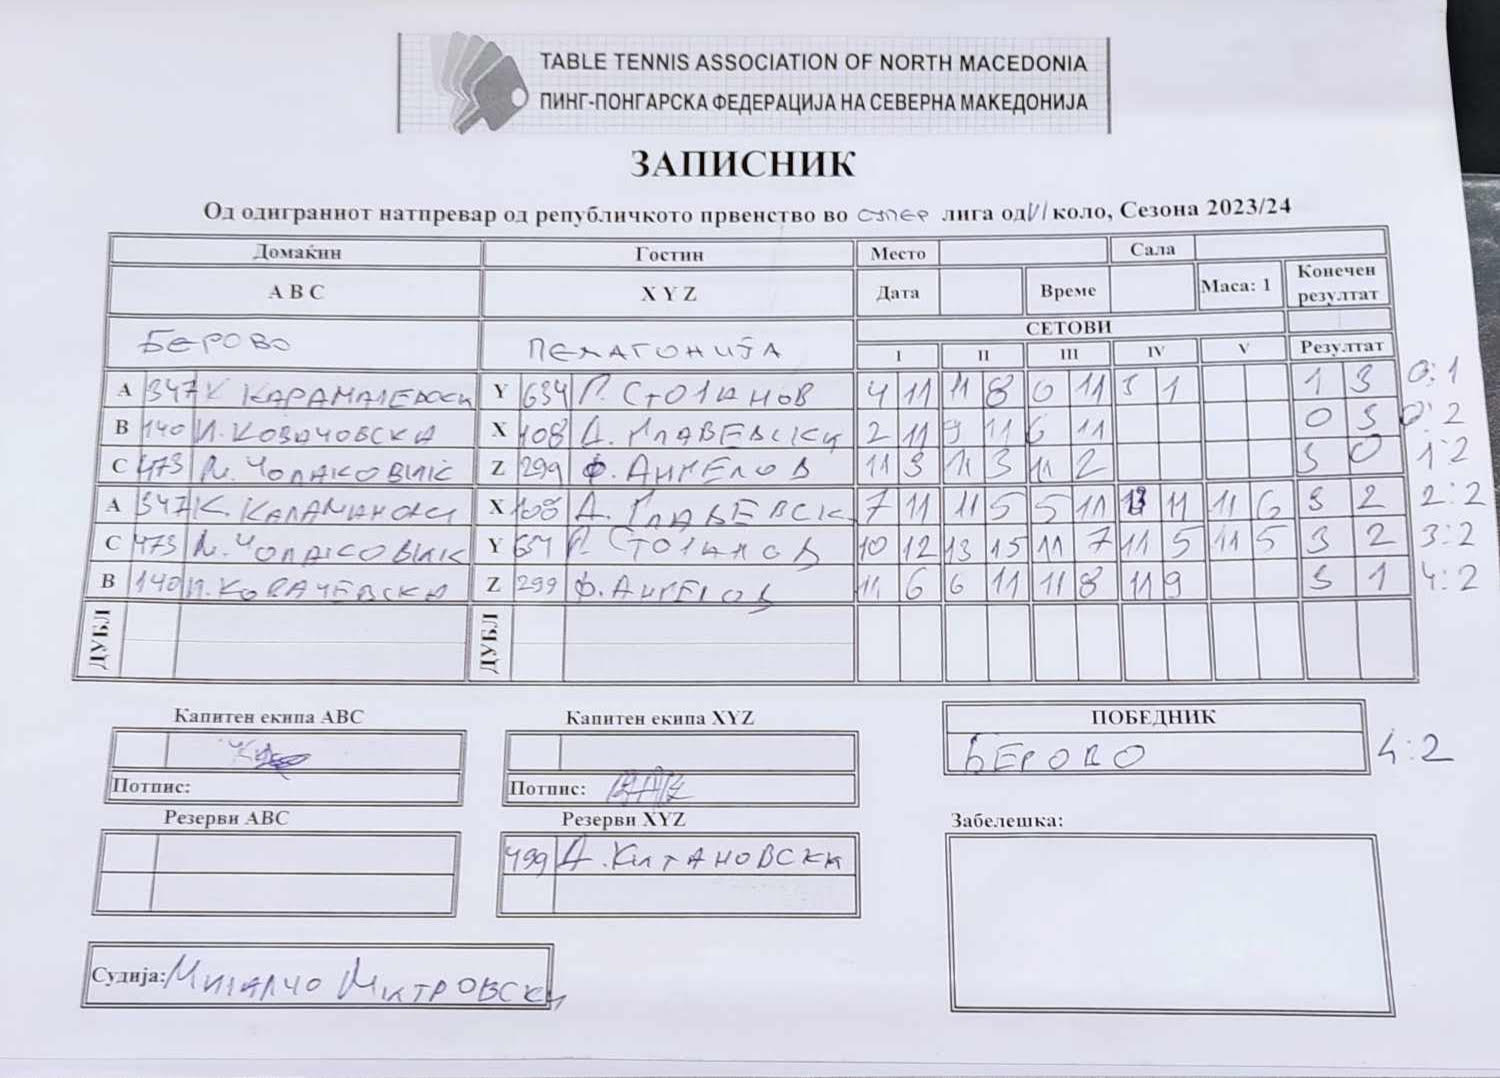 TABLE TENNIS ASSOCIATION OF NORTH MACEDONIA
ПИНГ-ПОНГАРСКА ФЕДЕРАЦИЈА НА СЕВЕРНА МАКЕДОНИЈА
ЗАПИСНИК
Од одиграниот натпревар од републичкото првенство во СУПЕР лига од VI коло, Сезона 2023/24
Домаќин Гостин Место Сала
A B C X Y Z Дата Време Маса: 1 Конечен резултат
БЕРОВО ПЕЛАГОНИЈА СЕТОВИ
I II III IV V Резултат
A 347 К КАРАМАЛЕВСКИ Y 634 П. СТОЈАНОВ 4 11 11 8 6 11 3 1 1 3 0:1
B 140 И. КОВАЧОВСКА X 108 Д. ПЛАВЕВСКИ 2 11 9 11 6 11 0 3 0:2
C 473 М. ЧОЛАКОВИЌ Z 299 Ф. АНГЕЛОВ 11 3 11 3 11 2 3 0 1:2
A 347 К. X 108 Д. ПЛАВЕВСК 7 11 11 5 5 11 13 11 11 6 3 2 2:2
C 473 М. ЧОЛАКОВИЌ Y 634 П. СТОЈАНОВ 10 12 13 15 11 7 11 5 11 5 3 2 3:2
B 140 И. КОВАЧЕВСКА Z 299 Ф. АНГЕЛОВ 11 6 6 11 11 8 11 9 3 1 4:2
ДУБЛ ДУБЛ
Капитен екипа ABC Капитен екипа XYZ ПОБЕДНИК
БЕРОВО 4:2
Потпис: Потпис:
Резерви ABC Резерви XYZ Забелешка:
499 Д. КИТАНОВСКИ
Судија: МИЈАЛЧО МИТРОВСКИ